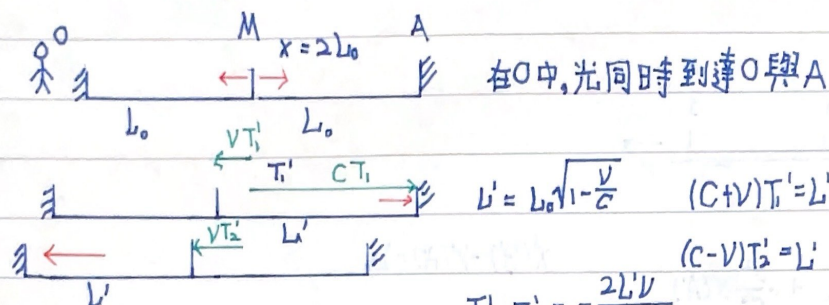 O M A
x = 2L₀
在O中,光同時到達O與A
L₀ L₀
VT₁'
T₁' CT₁
L' = L₀√1-V/C (C+V)T₁'=L'
VT₂' L' (C-V)T₂'=L'
L'
2L'V